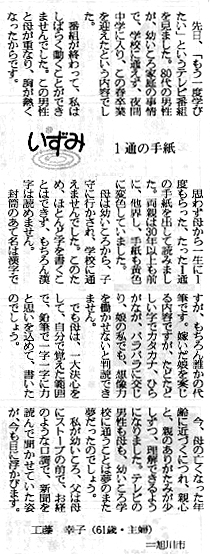 先日、「もう一度学び
たい」というテレビ番組
を見ました。80代の男性
が、幼いころ家庭の事情
で、学校に通えず、夜間
中学に入り、この春卒業
を迎えたという内容でし
た。
番組が終わって、私は
しばらく動くことができ
ませんでした。この男性
と母が重なり、胸が熱く
なったからです。
いずみ
1通の手紙
思わず母から一生に1
度もらった、たった1通
の手紙を出して読みまし
た。両親は30年以上も前
に、他界し、手紙も黄色
に変色していました。
母は幼いころから、子
守に行かされ、学校に通
えませんでした。このた
め、ほとんど字を書くこ
とはできず、もちろん漢
字は読めません。
封筒のあて名は漢字で
すが、もちろん誰かの代
筆です。嫁いだ娘を案じ
る内容ですが、たどたど
しい字でカタカナ、ひら
がなが、バラバラに交じ
り、娘の私でも、想像力
を働かせないと判読でき
ません。
でも母は、一大決心を
して、自分で覚えた範囲
で、鉛筆で一字一字に力
と思いを込めて、書いた
のでしょう。
今、母の亡くなった年
齢に近づくにつれ、親心
と、親のありがたみが少
しずつ、理解できるよう
になりました。テレビの
男性も母も、幼いころ学
校に通うことは夢のまた
夢だったのでしょう。
私が幼いころ、父は母
にストーブの前で、お経
のような口調で、新聞を
読んで聞かせていた姿
が、今も目に浮かびます。
工藤 幸子(61歳・主婦)
=旭川市